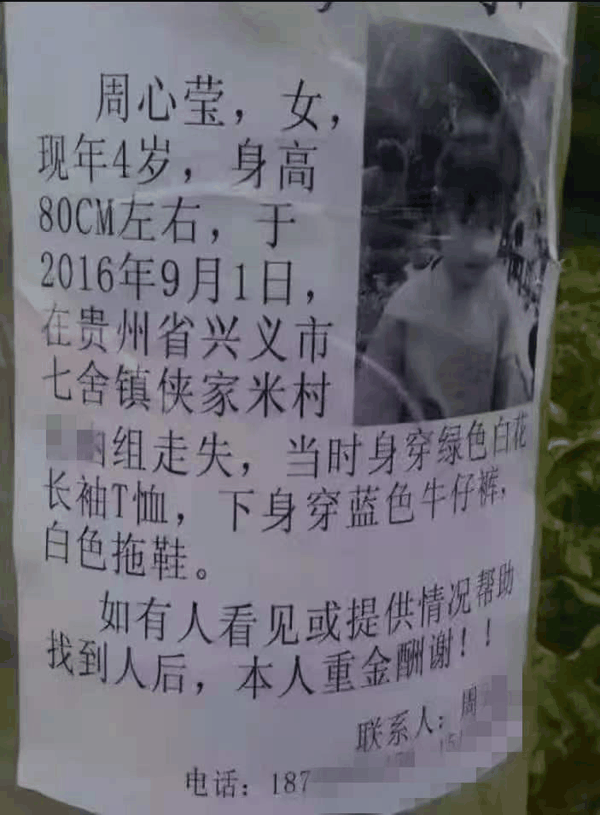 周心莹，女，
现年4岁，身高
80CM左右，于
2016年9月1日，
在贵州省兴义市
七舍镇侠家米村
组走失，当时身穿绿色白花
长袖T恤，下身穿蓝色牛仔裤，
白色拖鞋。
如有人看见或提供情况帮助
找到人后，本人重金酬谢！！
联系人：周
电话：187